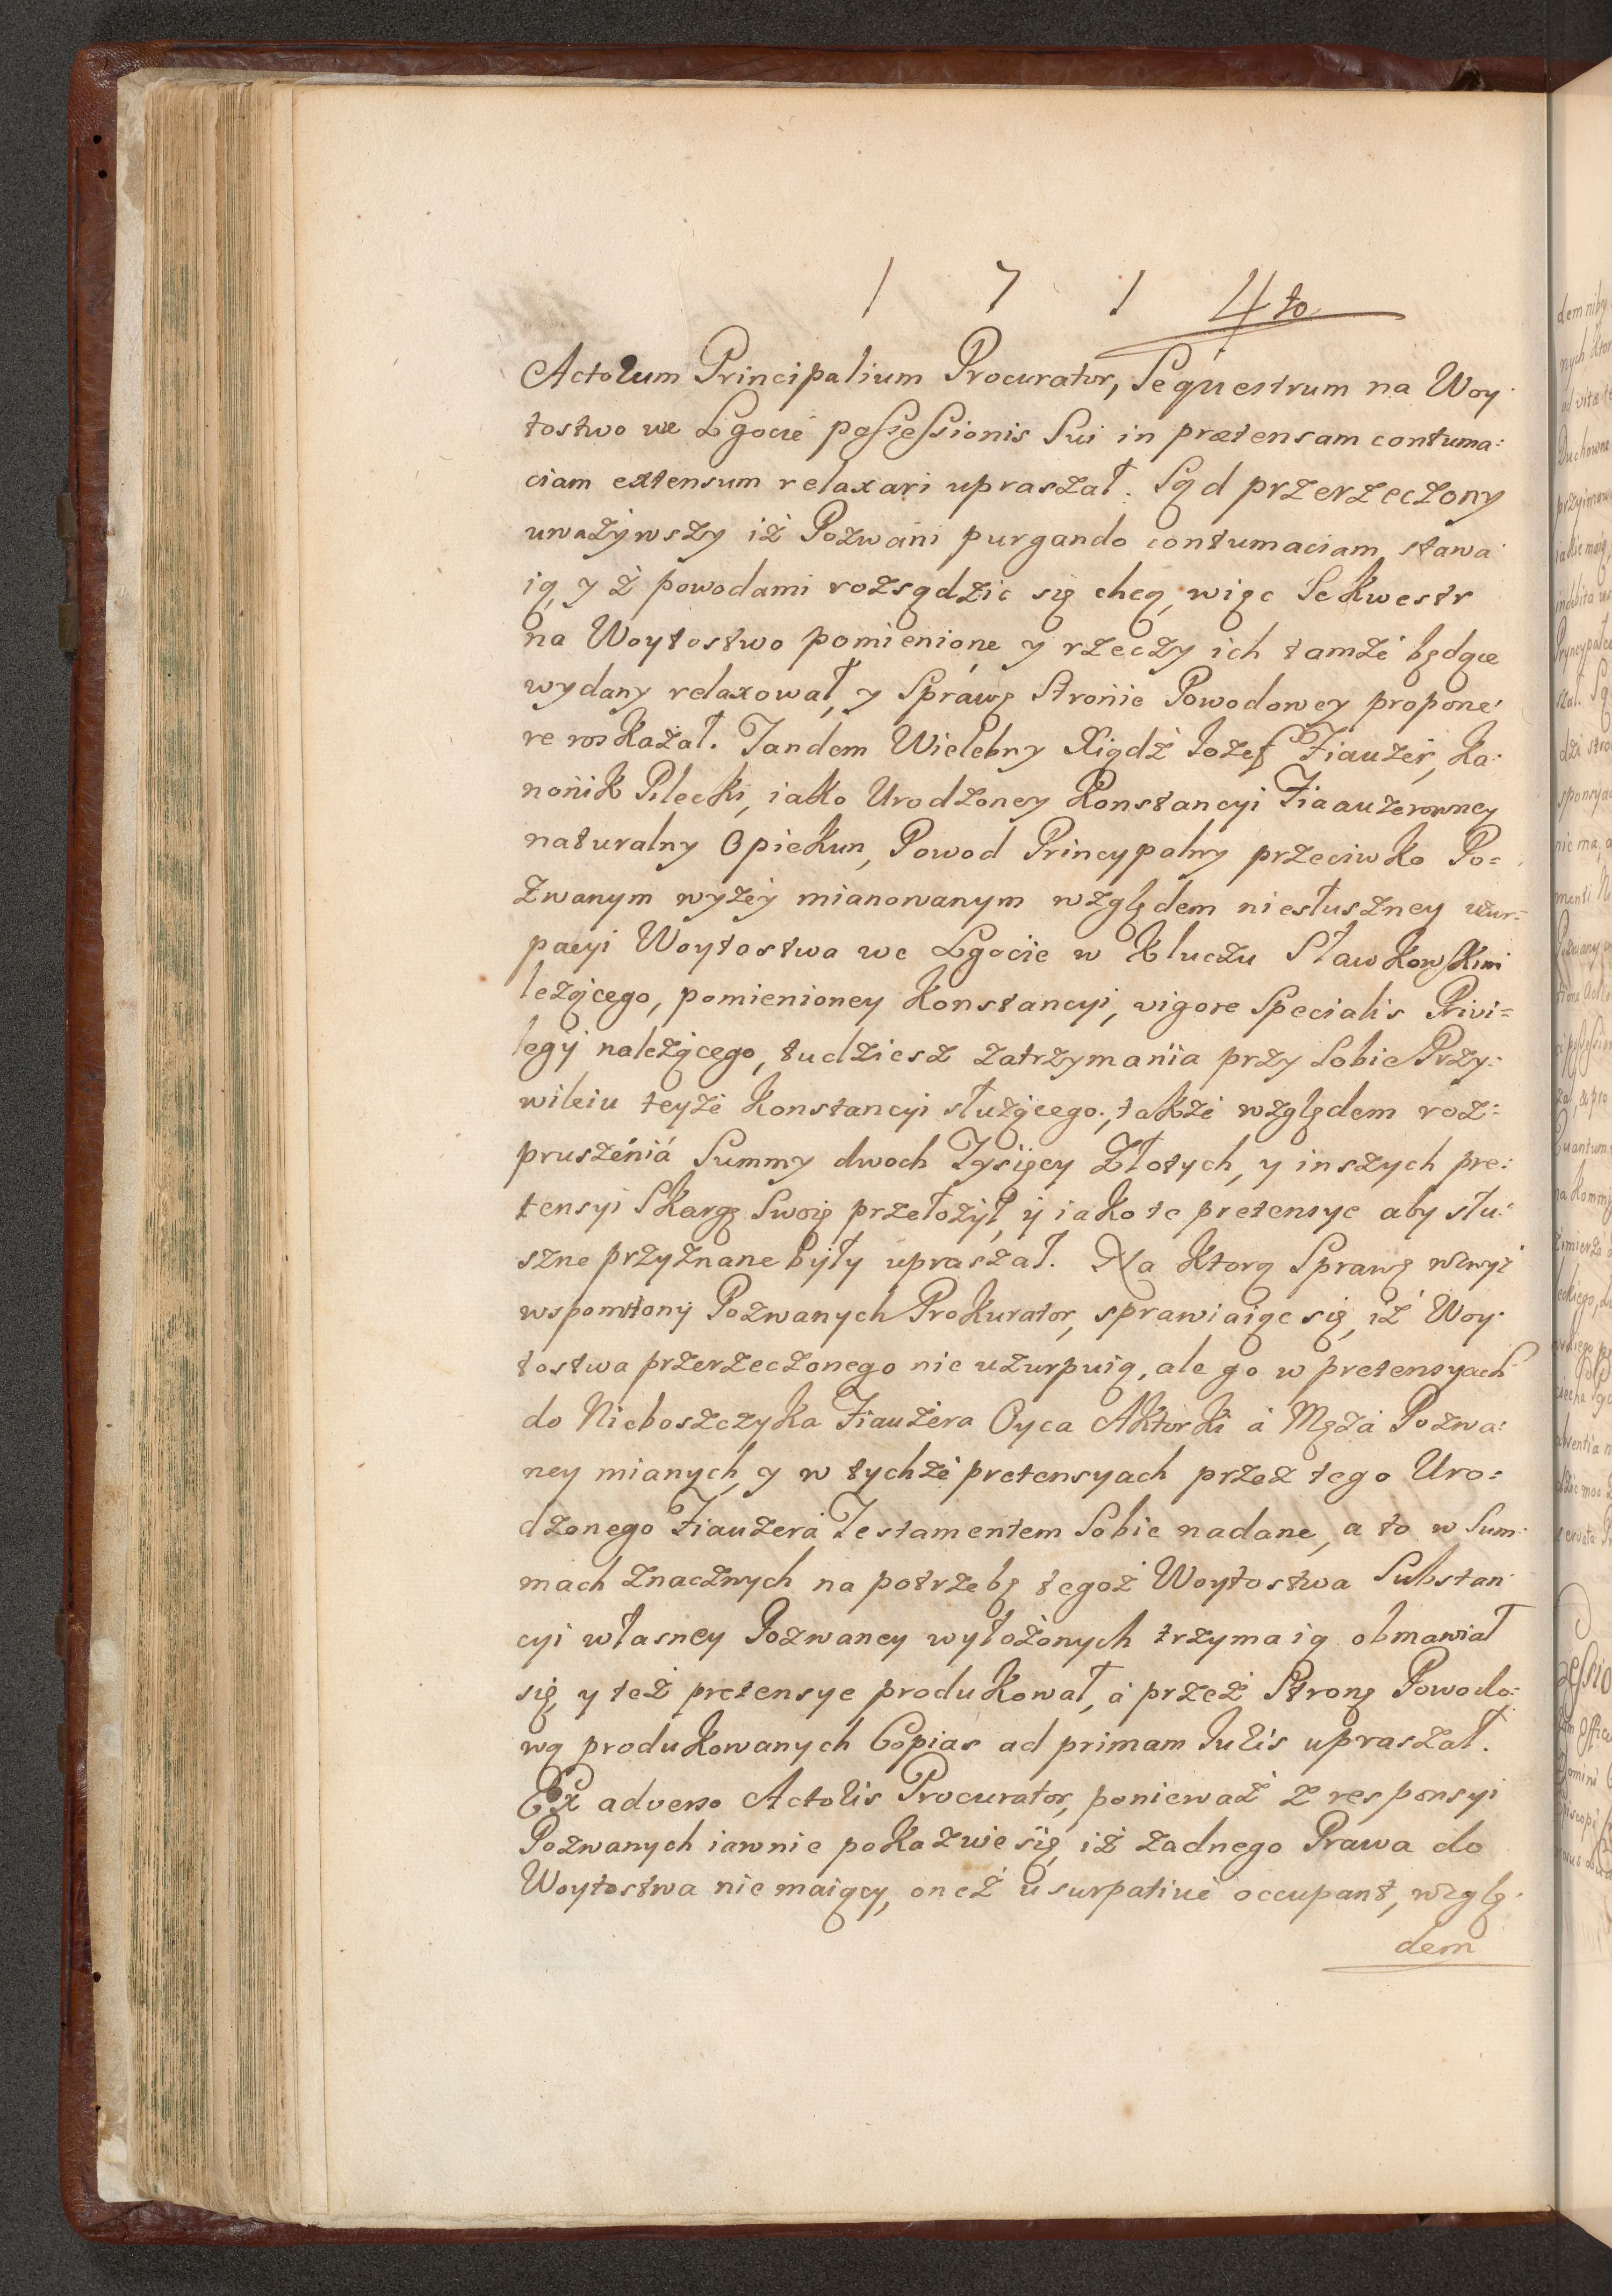 1 7 1 4to
Actorum Principalium Procurator, Sequestrum na Woy:
tostwo we Lgocie possessionis Sui in prætensam contuma:
ciam extensum relaxari upraszał. Sąd przerzeczony
uważywszy iż Pozwani purgando contumaciam, stawa:
ią, y z powodami rozsądzic się chcą, więc Sekwestr
na Woytostwo pomienione y rzeczy ich tamże będące
wydany relaxował, y Sprawę Stronie Powodowey propone:
re roskazał. Tandem Wielebny Xiądz Iozef Fiauzer, Ka:
nonik Pilecki, iako Urodzoney Konstancyi Fiaauzerowney
naturalny Opiekun, Powod Princypalny przeciwko Po=
zwanym wyżey mianowanym względem niesłuszney uzur=
pacyi Woytostwa we Lgocie w Kluczu Sławkowskim
leżącego, pomienioney Konstancyi, vigore Specialis Privi=
legij należącego, tudziesz zatrzymania przy Sobie Przy:
wileiu teyże Konstancyi służącego, także względem roz:
pruszenia Summy dwoch Tysięcy Złotych, y inszych pre:
tensyi Skargę Swoię przełożył, y iako te pretensye aby słu:
szne przyznane były upraszał. Na ktorą Sprawę wzwyż
wspomniony Pozwanych Prokurator, sprawiaiąc się, iż Woy:
tostwa przerzeczonego nie uzurpuią, ale go w pretensyach
do Nieboszczyka Fiauzera Oyca Aktorki a Męża Pozwa:
ney mianych, y w tychże pretensyach przez tego Uro=
dzonego Fiauzera Testamentem Sobie nadane, a to w Sum:
mach znacznych na potrzebę tegoż Woytostwa Substan:
cyi własney Pozwaney wyłożonych trzymaią obmawiał
się, y też pretensye produkował, a przez Stronę Powodo:
wą produkowanych Copias ad primam Iuris upraszał.
Ex adverso Actoris Procurator, ponieważ z responsyi
Pozwanych iawnie pokazuie się, iż żadnego Prawa do
Woytostwa nie maiący, oneż usurpative occupant, wzglę:
dem